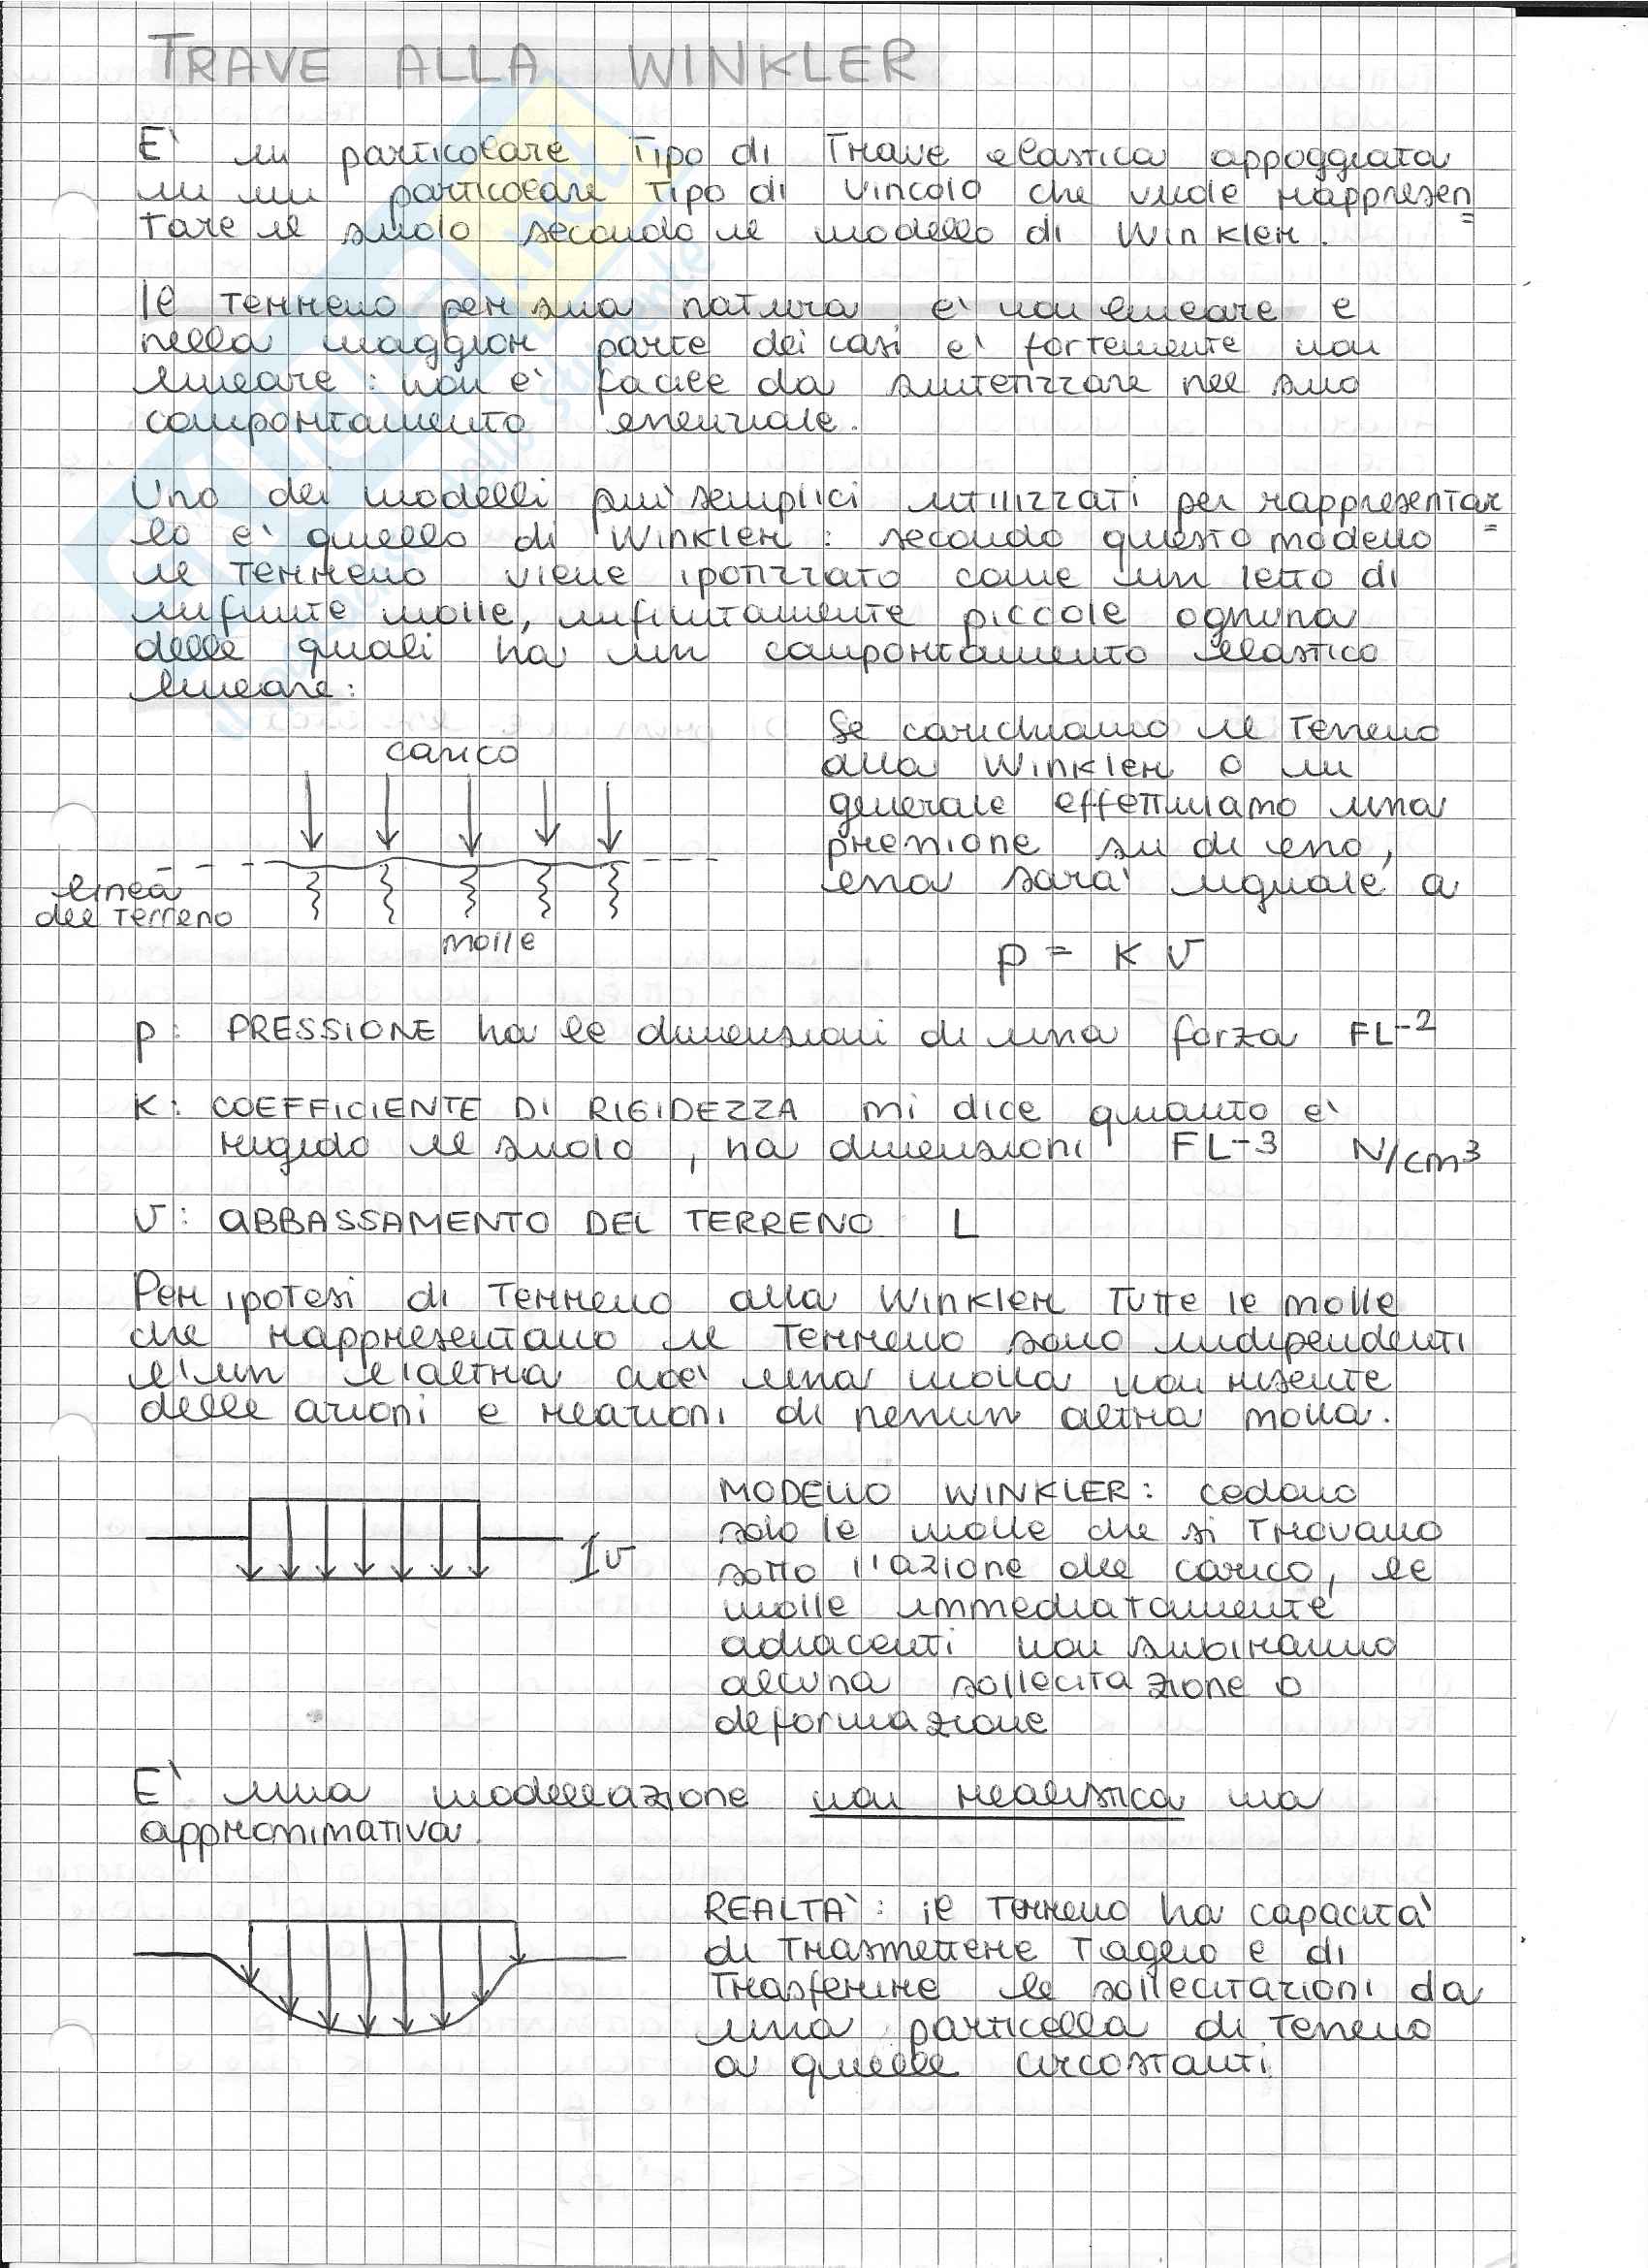 TRAVE ALLA WINKLER
E' un particolare tipo di trave elastica appoggiata
su un particolare tipo di vincolo che vuole rappresen=
tare il suolo secondo il modello di Winkler.
Il terreno per sua natura e' non lineare e
nella maggior parte dei casi e' fortemente non
lineare: non e' facile da sintetizzare nel suo
comportamento essenziale.
Uno dei modelli piu' semplici utilizzati per rappresentar=
lo e' quello di Winkler: secondo questo modello
il terreno viene ipotizzato come un letto di
infinite molle, infinitamente piccole ognuna
delle quali ha un comportamento elastico
lineare:
carico
linea
del terreno
molle
Se carichiamo il terreno
alla Winkler o in
generale effettuiamo una
pressione su di esso,
essa sara' uguale a
p = K v
p: PRESSIONE ha le dimensioni di una forza FL-2
K: COEFFICIENTE DI RIGIDEZZA mi dice quanto e'
rigido il suolo, ha dimensioni FL-3 N/cm3
v: ABBASSAMENTO DEL TERRENO L
Per ipotesi di terreno alla Winkler tutte le molle
che rappresentano il terreno sono indipendenti
l'un l'altra cioe' una molla non risente
delle azioni e reazioni di nessun altra molla.
v
MODELLO WINKLER: cedono
solo le molle che si trovano
sotto l'azione del carico, le
molle immediatamente
adiacenti non subiranno
alcuna sollecitazione o
deformazione
E' una modellazione non realistica ma
approssimativa.
REALTA': il terreno ha capacita'
di trasmettere taglio e di
trasferire le sollecitazioni da
una particella di terreno
a quelle circostanti